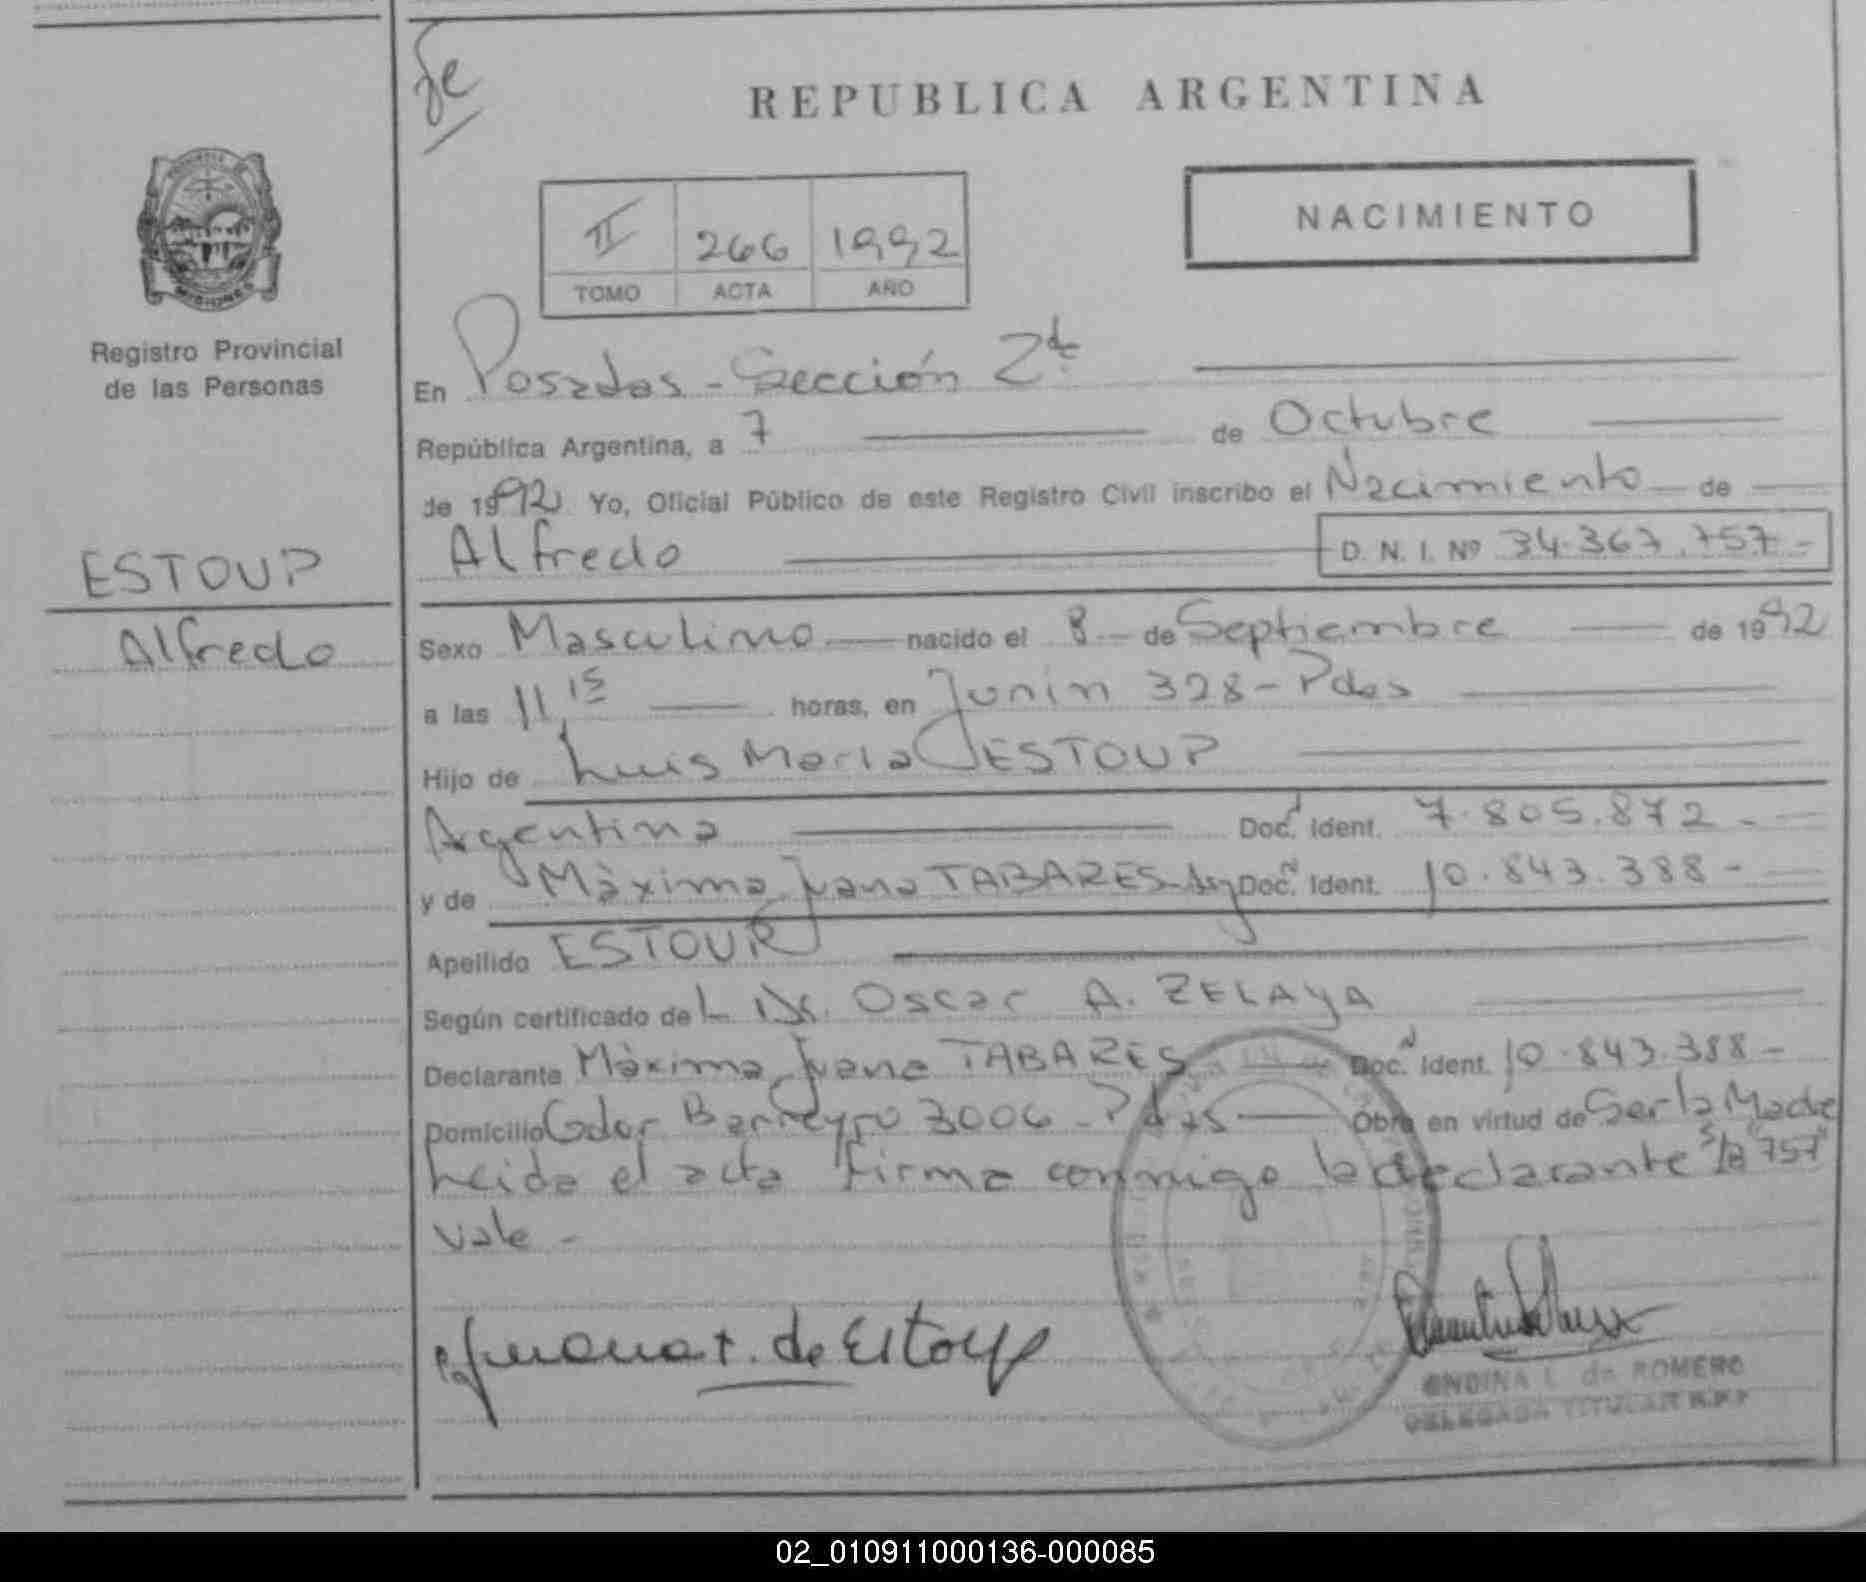 REPUBLICA ARGENTINA
NACIMIENTO
II 266 1992
TOMO ACTA AÑO
MISIONES
Registro Provincial
de las Personas
ESTOUP
Alfredo
En Posadas - Sección 2da
República Argentina, a 7 de Octubre
de 1992 Yo, Oficial Público de este Registro Civil inscribo el Nacimiento de
Alfredo D. N. I. Nº 34.367.757-
Sexo Masculino nacido el 8 de Septiembre de 1992
a las 11,15 horas, en Junin 328 - Pdas
Hijo de Luis Maria ESTOUP
Argentina Doc. Ident. 7.805.872-
y de Máxima Juana TABARES - Arg Doc. Ident. 10.843.388-
Apellido ESTOUP
Según certificado del Dr. Oscar A. ZELAYA
Declarante Máxima Juana TABARES Doc. Ident. 10.843.388-
Domicilio Gdor Barreyro 3006 - Pdas Obra en virtud de Ser la Madre
Leida el acta firma conmigo la declarante S/B "757"
Vale -
Juana T. de Estoup
ONDINA L. de ROMERO
DELEGADA TITULAR R.P.P
02_010911000136-000085